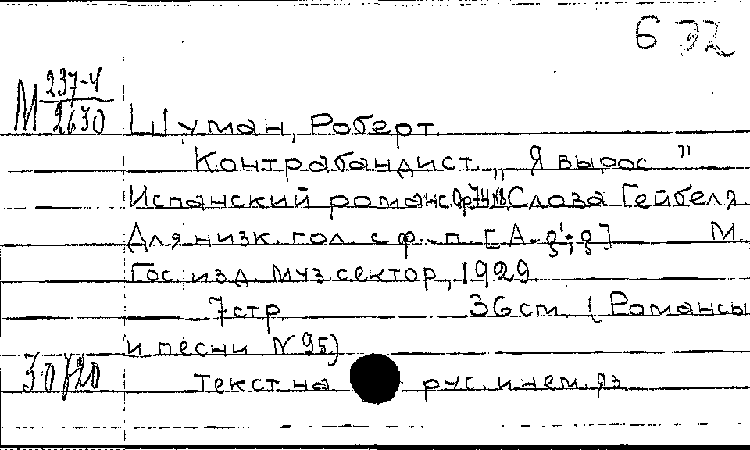 6 72
М 237-4
2630
Шуман, Роберт.
Контрабандист. „Я вырос"
Испанский романс Ор.74 №. Слова Гейбеля
Для низк. гол. с ф.-п. [А- ; ] М.
Гос. изд. муз сектор, 1929.
7 стр. 36 cm. (Романсы
и песни N 95)
30/20
Текст на рус. и нем. яз.